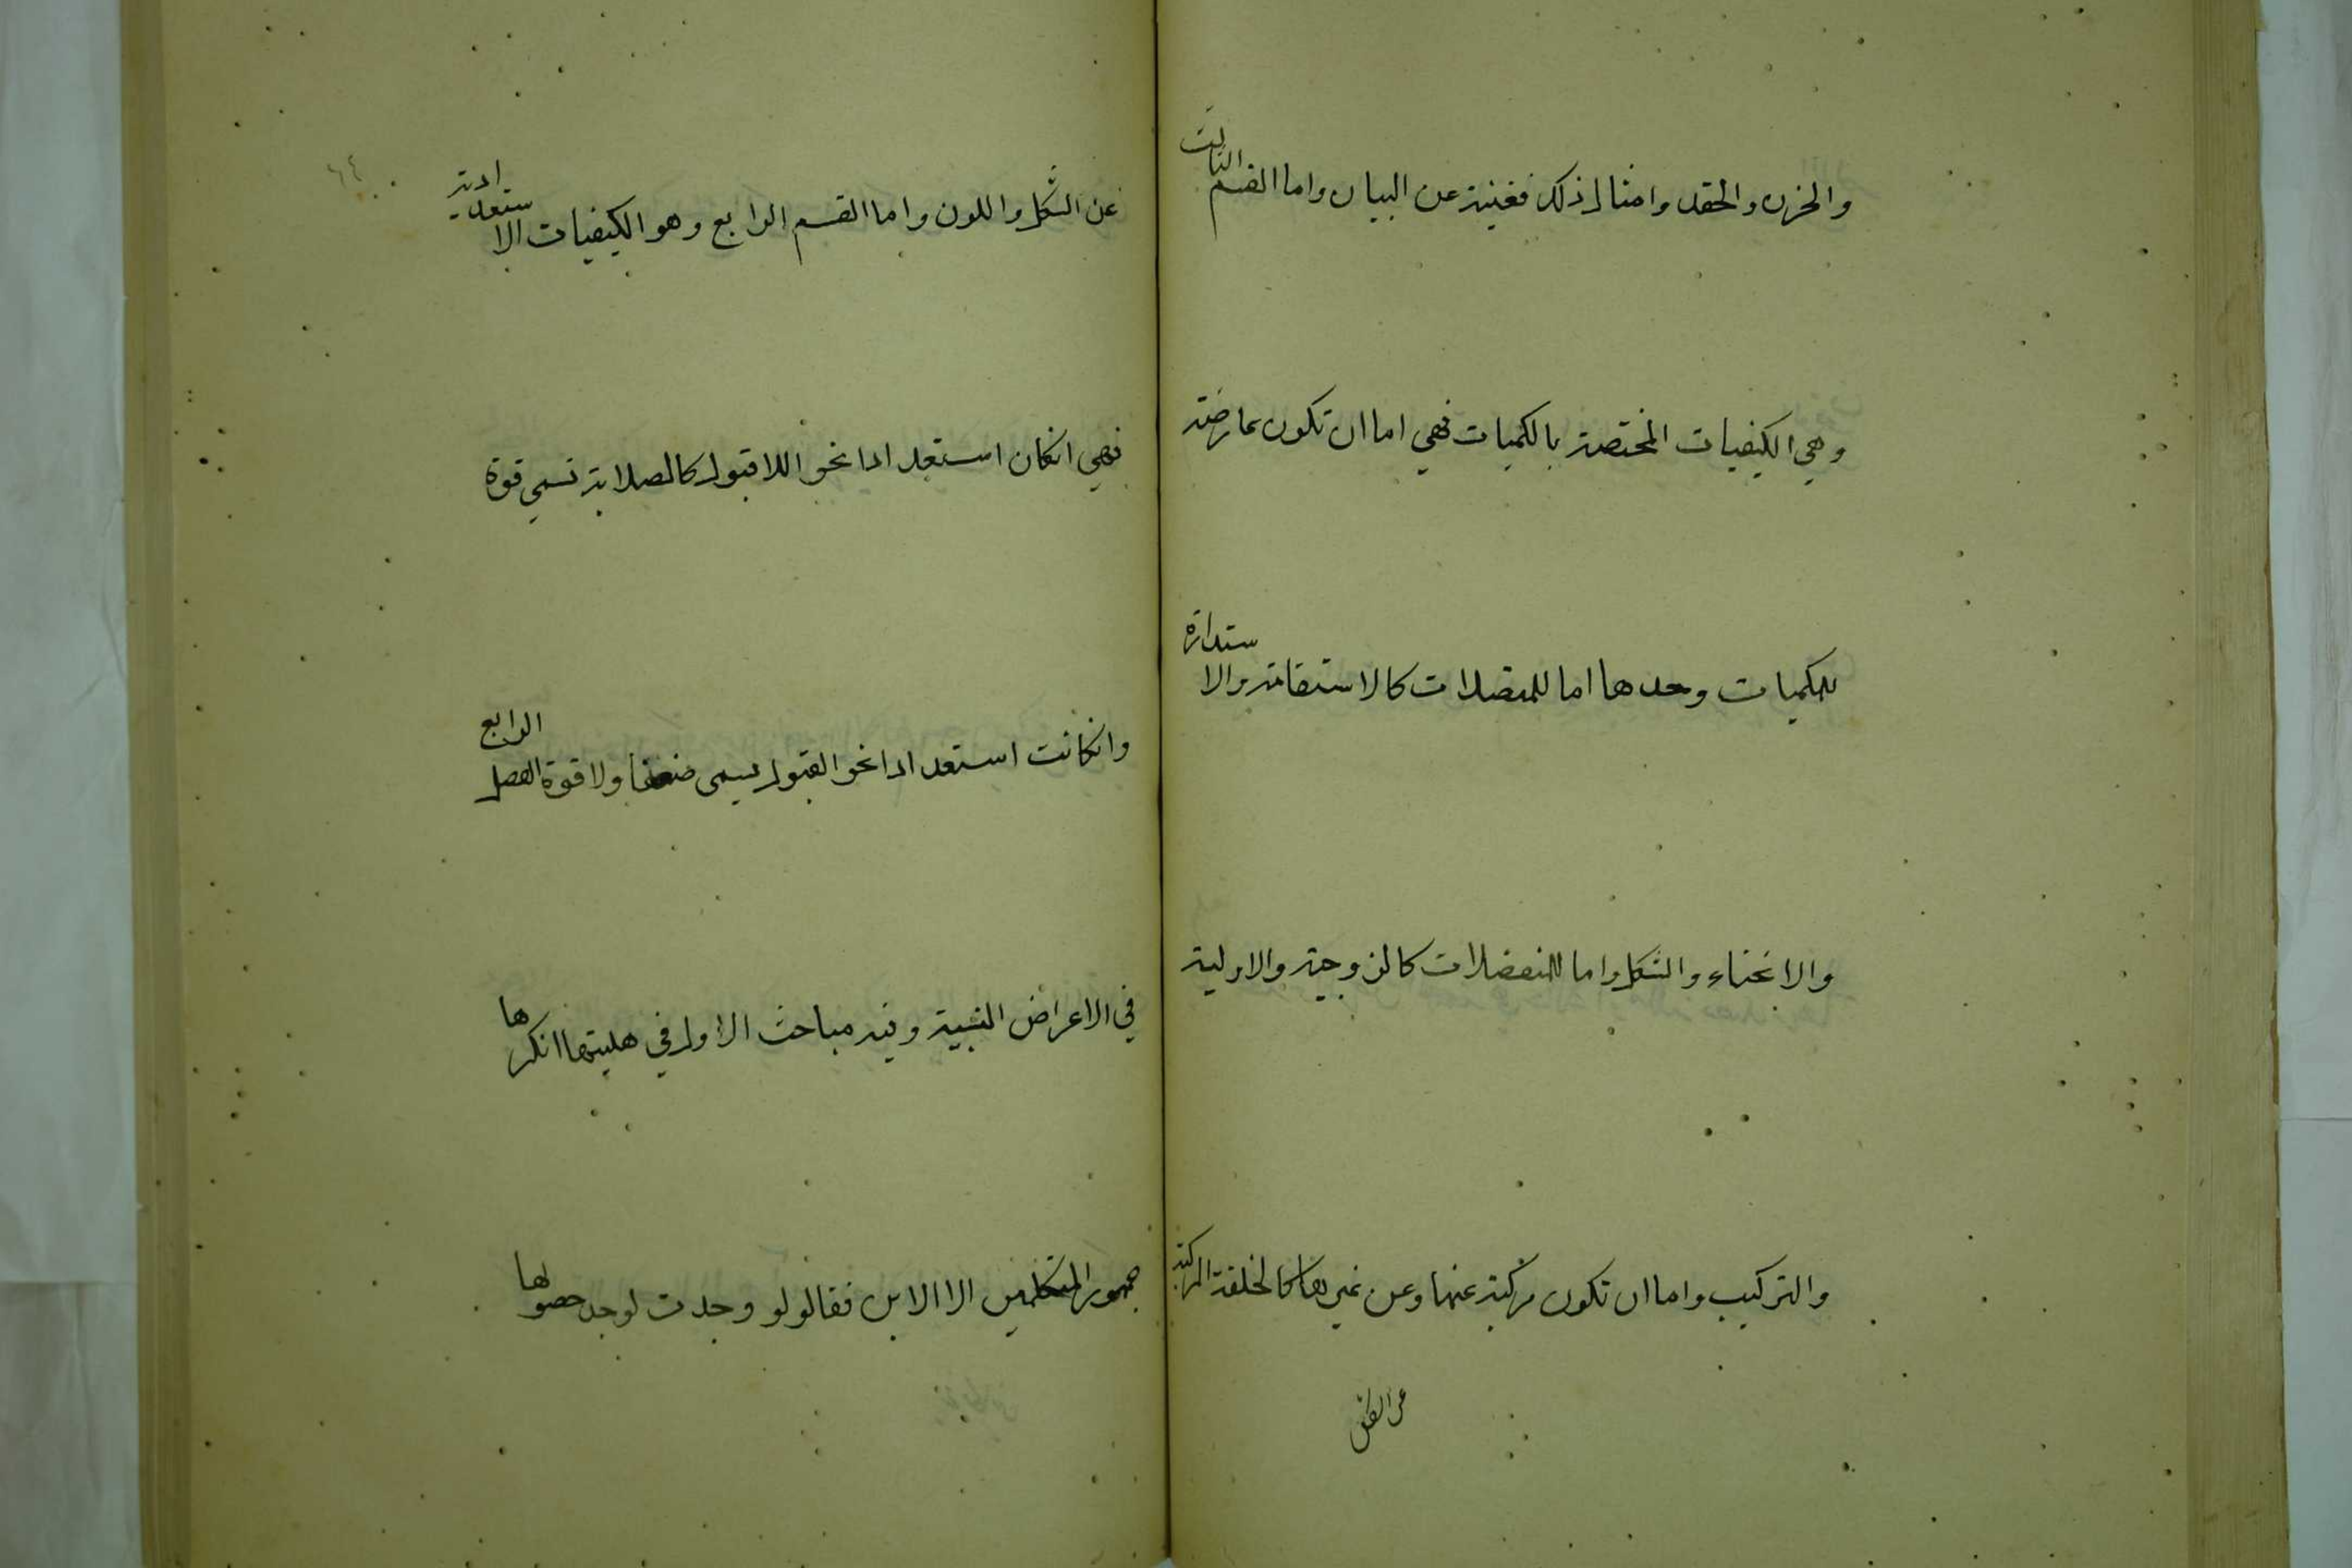 والحزن والحقد وامثال ذلك فغنية عن البيان واما القسم الثالث
وهي الكيفيات المختصة بالكميات فهي اما ان تكون عارضة
للكميات وحدها اما للمتصلات كالاستقامة والاستدارة
والانحناء والشكل واما للمنفصلات كالزوجية والاولية
والتركيب واما ان تكون مركبة عنها وعن غيرها كالخلقة المركبة
عن الشكل
عن الشكل واللون واما القسم الرابع وهو الكيفيات الاستعدادية
فهي انكان استعدادا نحو اللاقبول كالصلابة تسمى قوة
وانكانت استعدادا نحو القبول يسمى ضعفا ولا قوة الفصل الرابع
في الاعراض النسبية وفيه مباحث الاول في هليتها انكرها
جمهور المتكلمين الا الاين فقالو لو وجدت لوجد حصولها
٦٤